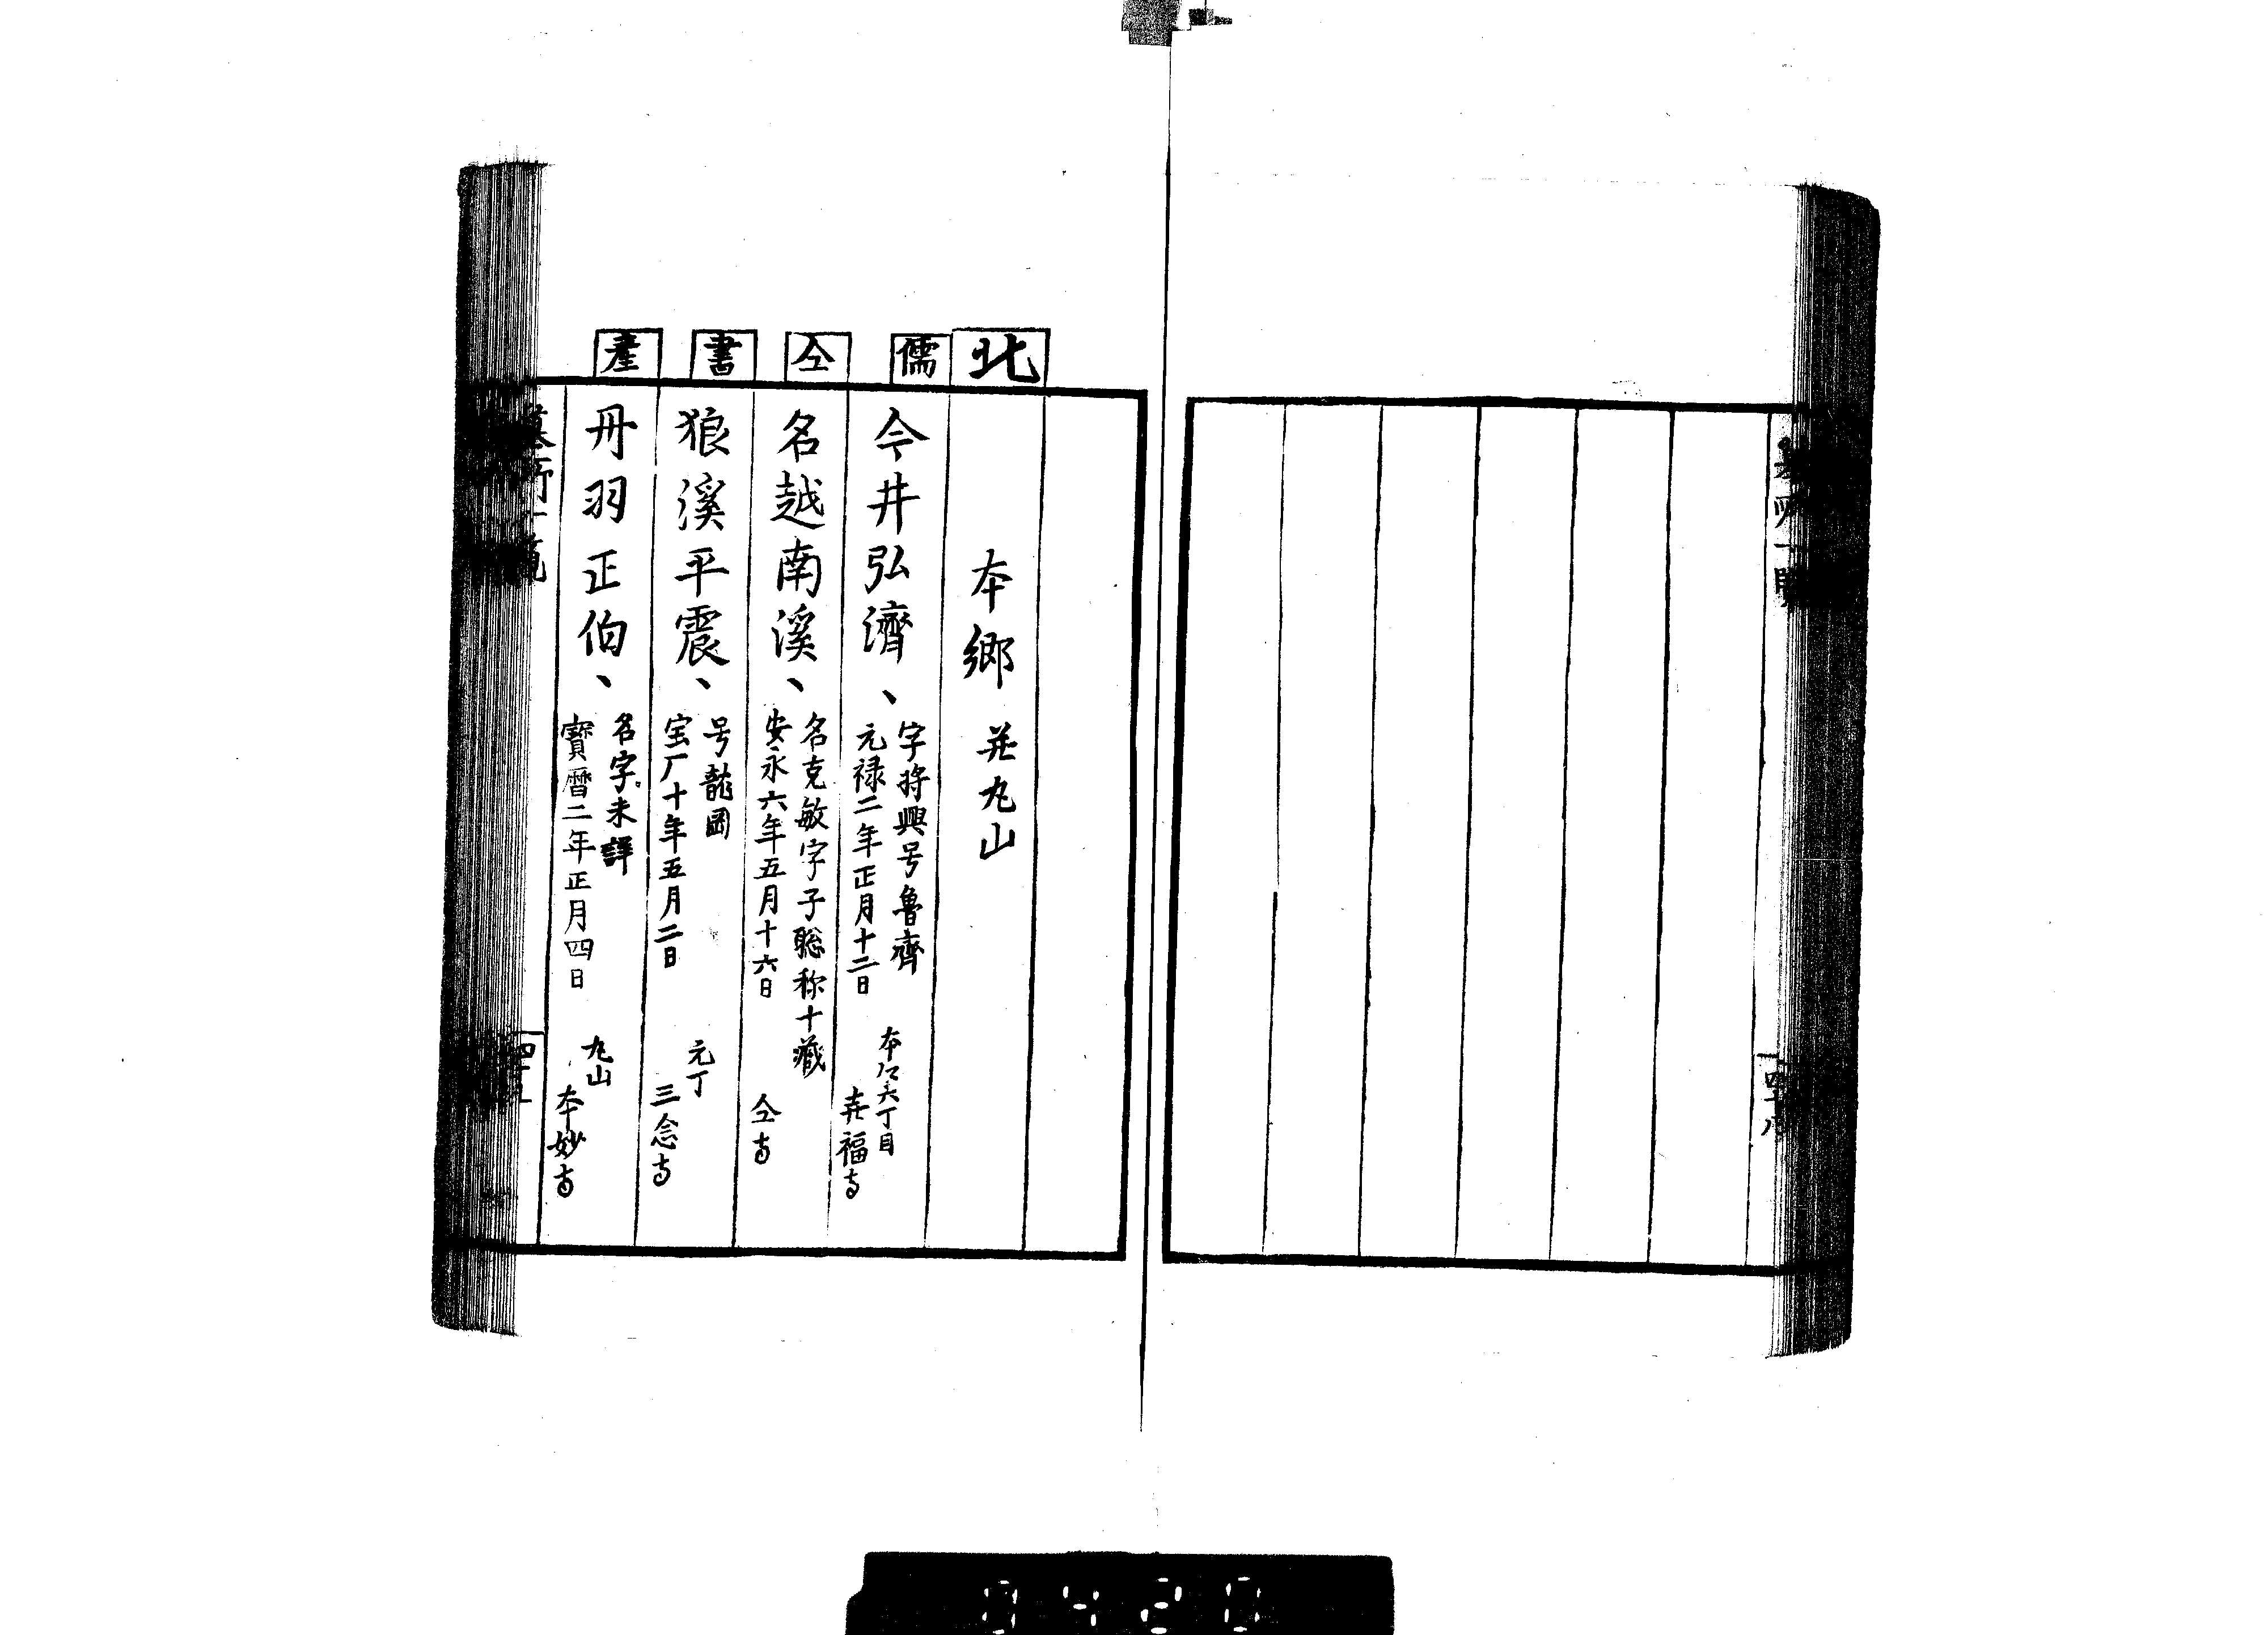 墓所一覧
四十八
北
本郷 并丸山
儒
今井弘濟、
字将興号魯齊
元禄二年正月十二日
本江六丁目
喜福寺
仝
名越南溪、
名克敏字子聡称十藏
安永六年五月十六日
仝寺
書
狼溪平震、
号龍岡
宝厂十年五月二日
元丁
三念寺
產
丹羽正伯、
名字未詳
寳曆二年正月四日
丸山
本妙寺
墓所一覧